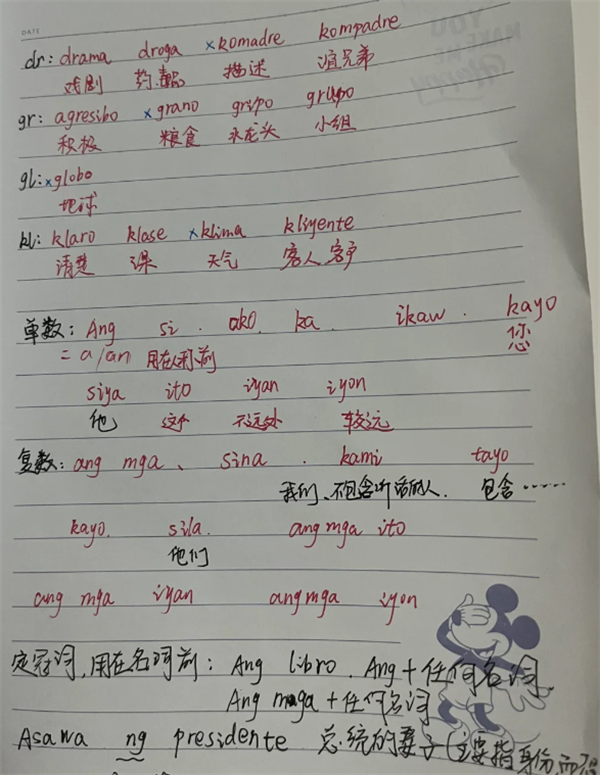 DATE
YOU
MAKE ME
Happy
dr: drama droga ×komadre kompadre
戏剧 药毒品 描述 道兄弟
gr: agresibo ×grano gripo grupo
积极 粮食 水龙头 小组
gl: ×globo
地球
kl: klaro klase ×klima kliyente
清楚 课 天气 客人 客户
单数: Ang si . ako . ka . ikaw . kayo
= a/an 用在人名前 您
siya ito iyan iyon
他 这个 不远处 较远
复数: ang mga 、 sina . kami tayo
我们、不包含听话的人. 包含……
kayo. sila. ang mga ito
他们
ang mga iyan ang mga iyon
定冠词,用在名词前: Ang libro . Ang+任何名词.
Ang maga+任何名词
Asawa ng presidente 总统的妻子(主要指身份而